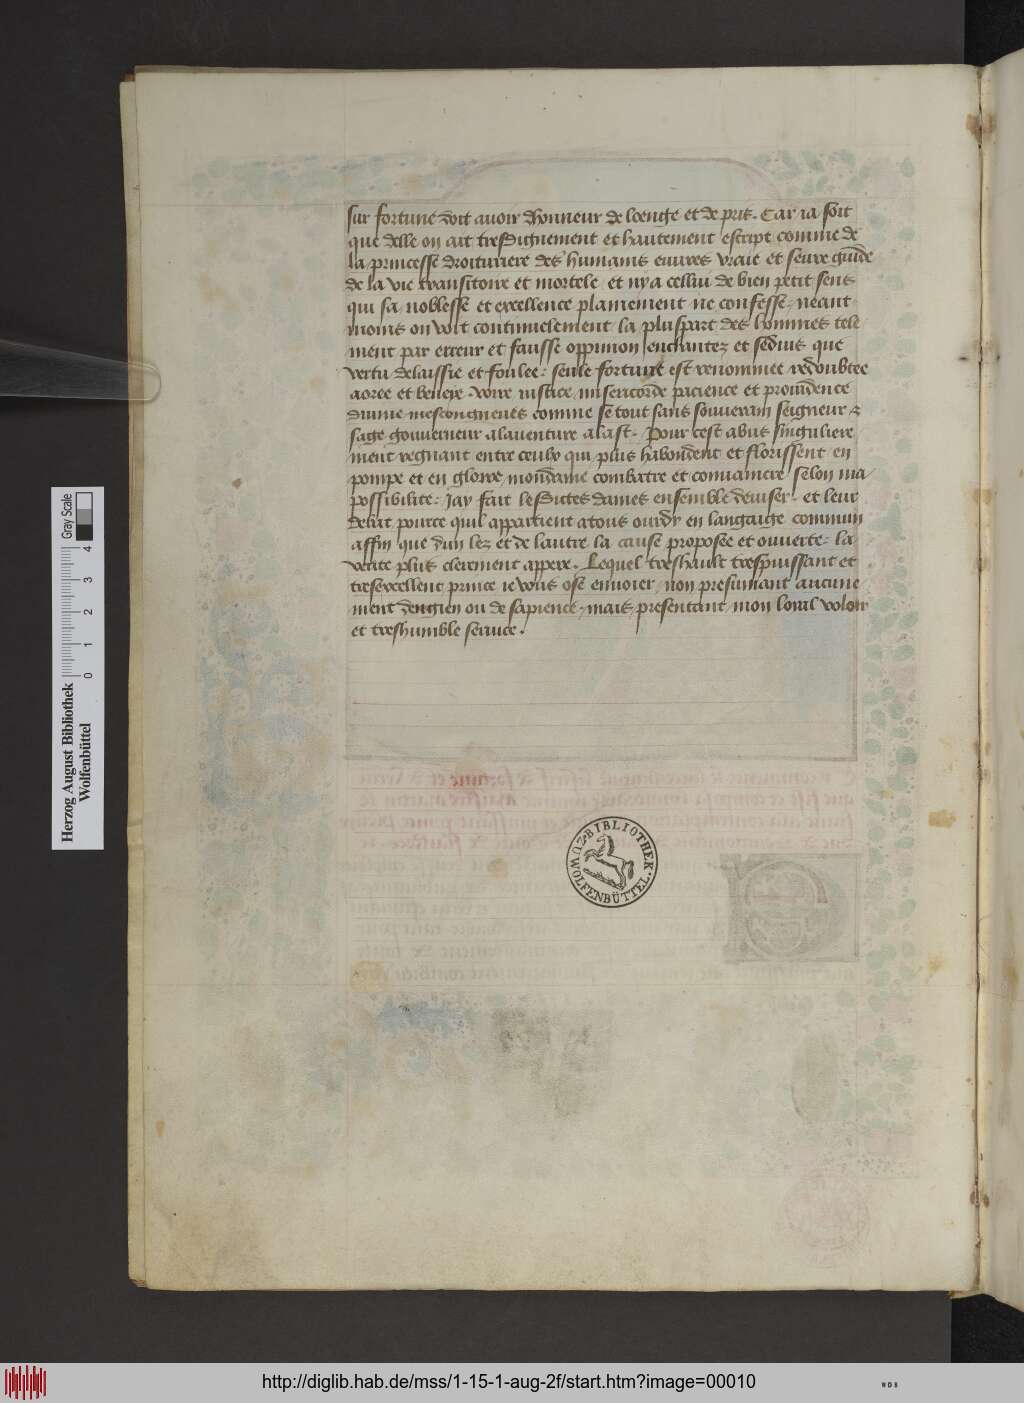 sur fortune doit avoir dhonneur de loenge et de pris. Car ia soit
que delle on ait tresdignement et haultement escript comme de
la princesse droituriere des humains euures vraie et seure guide
de la vie transitoire et mortele et ny a cellui de bien petit sens
qui sa noblesse et excellence plainement ne confesse, neant
moins on voit continuelement la pluspart des hommes tele
ment par erreur et fausse oppinion enchantez et seduis que
vertu delaissie et foulee: seule fortune est renommee redoubtee
aoree et beneye voire iustice misericorde pacience et prouidence
diuine mescongneues comme se tout sans souuerain seigneur &
sage gouuerneur alauenture alast. Pour cest abus singuliere
ment regnant entre ceulx qui plus habondent et florissent en
pompe et en gloire mondaine combatre et conuaincre selon ma
possibilite: Jay fait lesdictes dames ensemble deuiser, et leur
debat pource quil appartient a tous ourdy en langaige commun
affin que dun lez et de lautre la cause proposee et ouuerte: la
verite plus clerement appere. Lequel treshault trespuissant et
tresexcellent prince ie vous ose enuoier, non presumant aucune
ment dengien ou de sapience, mais presentant mon loyal voloir
et treshumble seruice.
BIBLIOTHEK
ZU
WOLFENBÜTTEL
Herzog August Bibliothek
Wolfenbüttel
0 1 2 3 4
Gray Scale
http://diglib.hab.de/mss/1-15-1-aug-2f/start.htm?image=00010
WDB